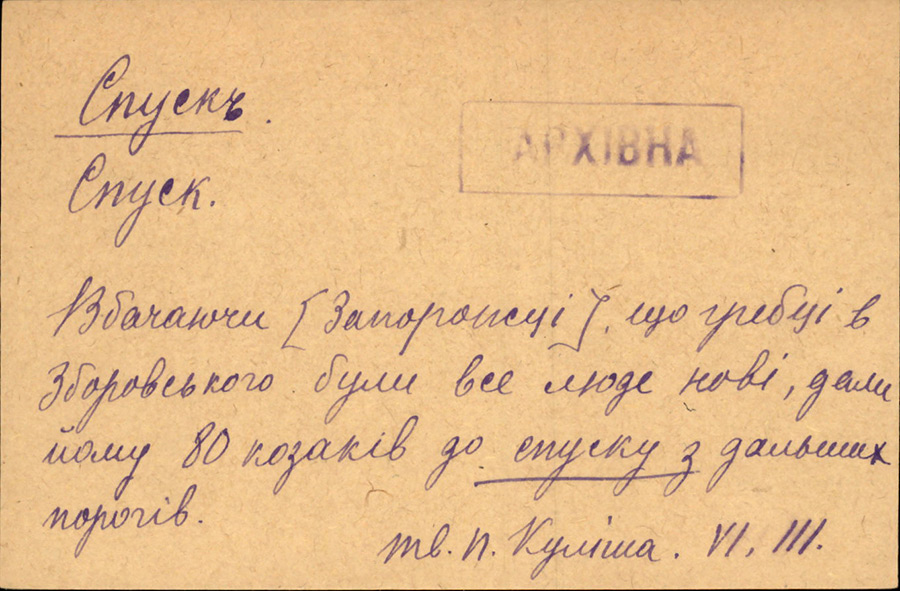 Спускъ.
АРХІВНА
Спуск.
Вбачаючи [Запорожці], що гребці в
Зборовського були все люде нові, дали
йому 80 козаків до спуску з дальших
порогів.
тв. П. Куліша. VI, III.